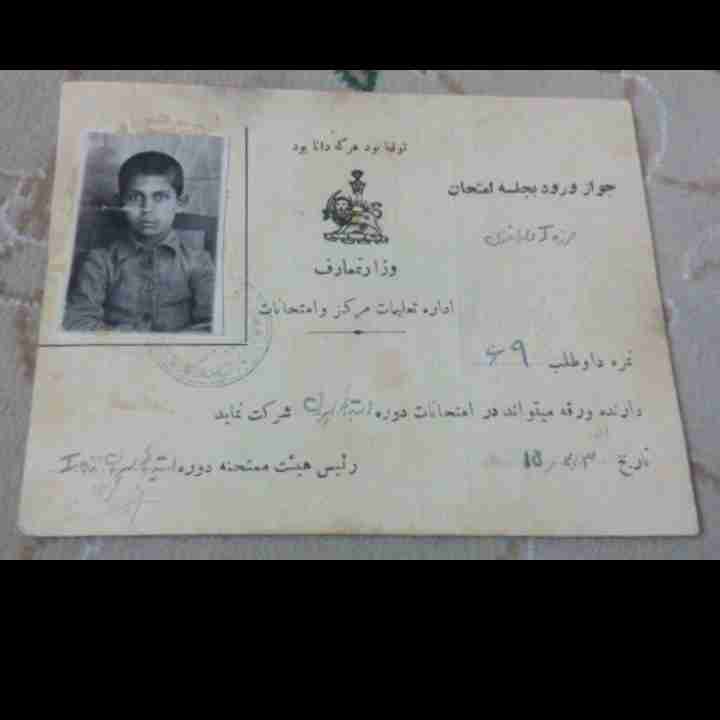 توانا بود هر که دانا بود
جواز ورود بجلسه امتحان
وزارتمعارف
اداره تعلیمات مرکز و امتحانات
نمره داوطلب ۶۹
دارنده ورقه میتواند در امتحانات دوره ابتدائی پسران شرکت نماید
تاریخ
رئیس هیئت ممتحنه دوره ابتدائی پسران